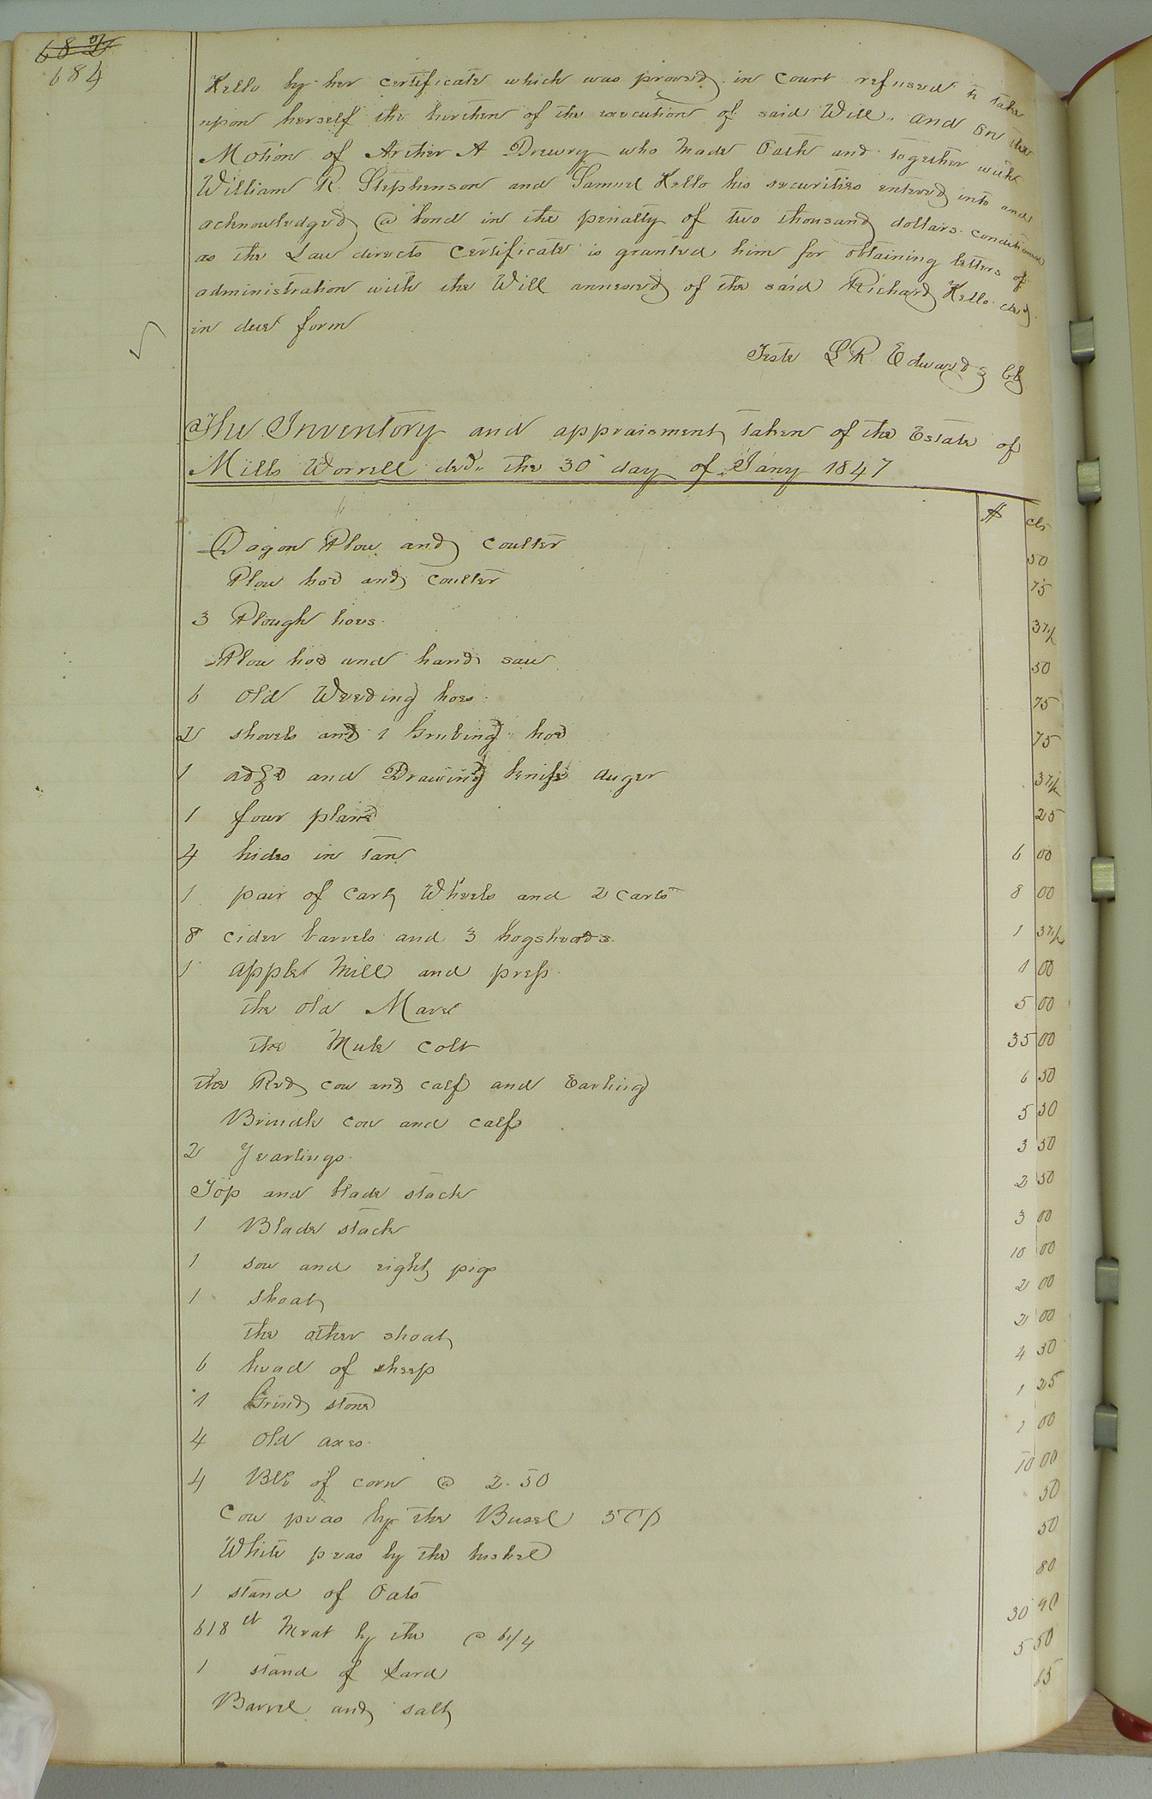 684
Kello by her certificate which was proved in Court refused to take
upon herself the burthen of the execution of said Will. and on the
Motion of Archer A Drewry who made Oath and together with
William R Stephenson and Samuel Kello his securities entered into and
acknowledged @ bond in the penalty of two thousand dollars conditioned
as the Law directs Certificate is granted him for obtaining letters of
administration with the Will annexed of the said Richard Kello decd
in due form
Teste L R Edwards Clk
The Inventory and appraisment taken of the Estate of
Mills Worrell decd. the 30 day of Jany 1847
$ cts
Dagon Plow and coulter 50
Plow hoe and coulter 75
3 Plough hoes 37 1/2
Plow hoe and hand saw 50
6 old Weeding hoes 75
2 shovels and 1 Grubing hoe 75
1 adze and Drawing knife auger 37 1/2
1 four plane 25
4 hides in tan 6 00
1 pair of Cart Wheels and 2 Carts 8 00
8 cider barrels and 3 hogsheads 1 37 1/2
1 apple Mill and press 1 00
the old Mare 5 00
the Mule colt 35 00
the Red cow and calf and Earling 6 50
Brindle cow and calf 5 50
2 Yearlings 3 50
Top and blade stack 2 50
1 Blade stack 3 00
1 sow and eight pigs 10 00
1 shoat 2 00
the other shoat 2 00
6 head of sheep 4 50
1 Grind stone 1 25
4 old axes 1 00
4 Bbls of corn @ 2.50 10 00
Cow peas by the Busel 50 50
White peas by the bushel 50
1 stand of Oats 80
618 lb Meat by the @ 6 1/4 30 90
1 stand of Lard 5 50
Barrel and salt 65